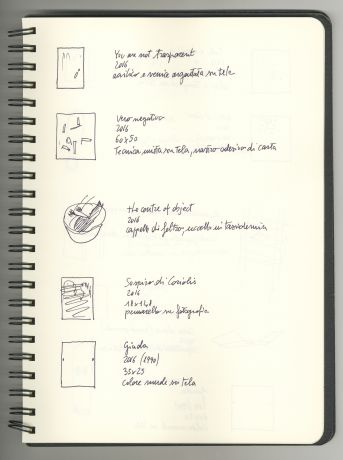 You are not trasparent
2016
acrilico e vernice argentata su tela
Vero negativo
2016
60x50
Tecnica mista su tela, nastro adesivo di carta
the centre of object
2016
cappello di feltro, uccello in tassidermia
Sospiro di Coriolis
2016
pennarello su fotografia
Giuda
2016 (1990)
35x25
colore murale su tela